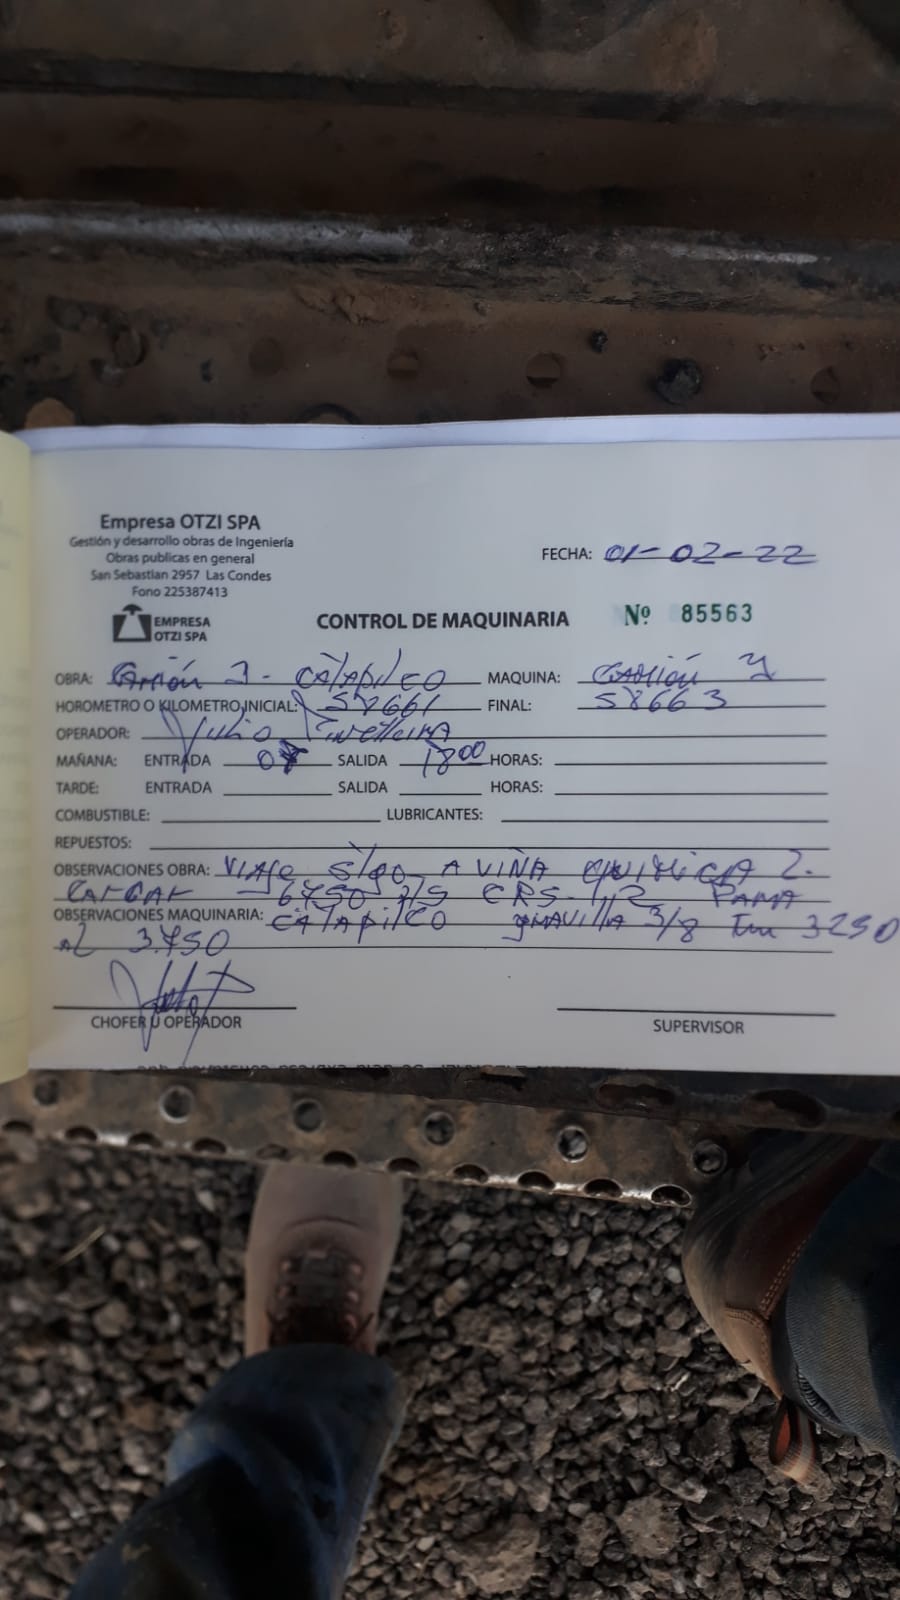 Empresa OTZI SPA
Gestión y desarrollo obras de Ingeniería
Obras publicas en general
San Sebastian 2957 Las Condes
Fono 225387413
EMPRESA
OTZI SPA
FECHA: 01-02-22
CONTROL DE MAQUINARIA Nº 85563
OBRA: Camión 1 - CATAPILCO MAQUINA: CAMIÓN
HOROMETRO O KILOMETRO INICIAL: 58661 FINAL: 58663
OPERADOR: Julio
MAÑANA: ENTRADA SALIDA 18 00 HORAS:
TARDE: ENTRADA SALIDA HORAS:
COMBUSTIBLE: LUBRICANTES:
REPUESTOS:
OBSERVACIONES OBRA: VIAJE S/go A VIÑA QUIMICA 2.
CARGAR 6750 CRS-1 PARA
OBSERVACIONES MAQUINARIA: CATAPILCO gravilla 3/8 3250
AL 3.750
CHOFER U OPERADOR
SUPERVISOR